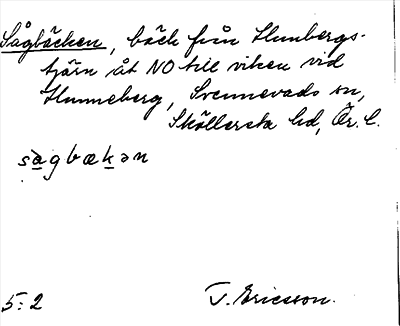 Sågbäcken, bäck från Hunbergs-
tjärn åt NO till viken vid
Hunneberg, Svennevads sn,
Sköllersta hd, Ör. l.
sågbækən
5:2 T. Ericsson.